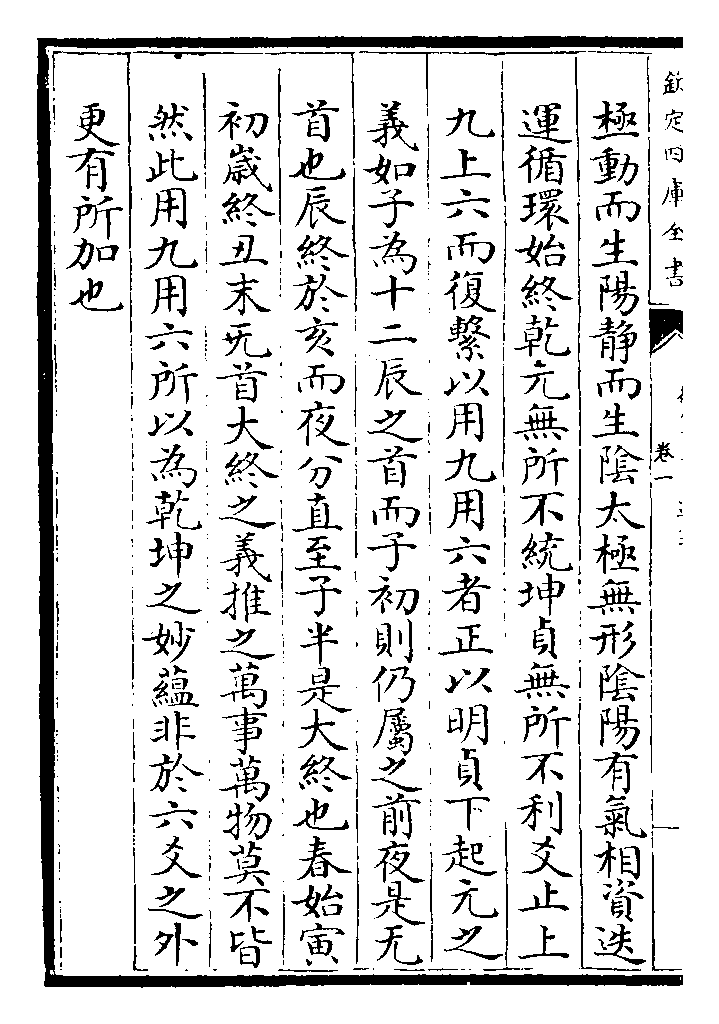 欽定四庫全書
卷一
極動而生陽静而生陰太極無形陰陽有氣相資迭
運循環始終乾元無所不統坤貞無所不利爻止上
九上六而復繫以用九用六者正以明貞下起元之
義如子為十二辰之首而子初則仍屬之前夜是无
首也辰終於亥而夜分直至子半是大終也春始寅
初歲終丑末无首大終之義推之萬事萬物莫不皆
然此用九用六所以為乾坤之妙蘊非於六爻之外
更有所加也